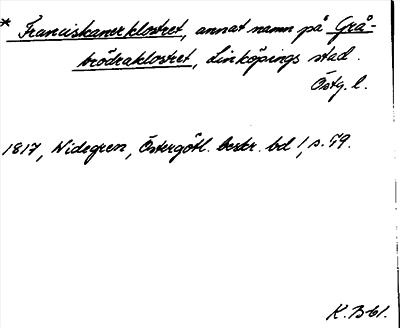 * Franciskanerklostret, annat namn på Grå-
brödraklostret, Linköpings stad.
Östg. l.
1817, Widegren, Östergötl. beskr. bd 1, s. 99.
K. B-61.